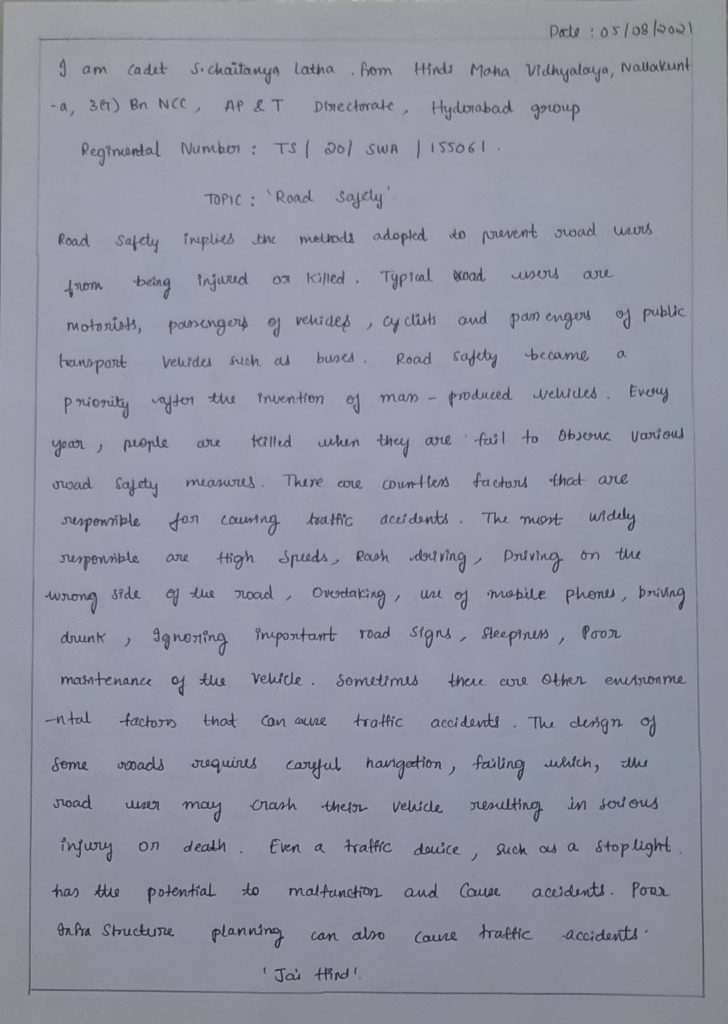 Date : 05/08/2021
I am cadet S.chaitanya Latha . from Hindi Maha Vidhyalaya, Nallakunt
-a, 3(T) Bn NCC, AP & T Directorate, Hyderabad group
Regimental Number : TS / 20/ SWA / 155061 .
TOPIC : 'Road Safety'.
Road Safety implies the methods adopted to prevent road users
from being injured or killed . Typical road users are
motorists, passengers of vehicles , cyclists and passengers of public
transport vehicles such as buses . Road Safety became a
priority after the invention of mass - produced vehicles . Every
year , people are killed when they are fail to Observe various
road Safety measures . There are countless factors that are
responsible for causing traffic accidents . The most widely
responsible are High Speeds , Rash driving , Driving on the
wrong side of the road , Overtaking , use of mobile phones , Driving
drunk , Ignoring important road signs , Sleepiness , Poor
maintenance of the vehicle . Sometimes there are Other environme
-ntal factors that can cause traffic accidents . The design of
Some roads requires careful navigation , failing which, the
road user may crash their vehicle resulting in serious
injury or death . Even a traffic device , Such as a stoplight .
has the potential to malfunction and Cause accidents . Poor
Infra Structure planning can also cause traffic accidents .
'Jai Hind'.